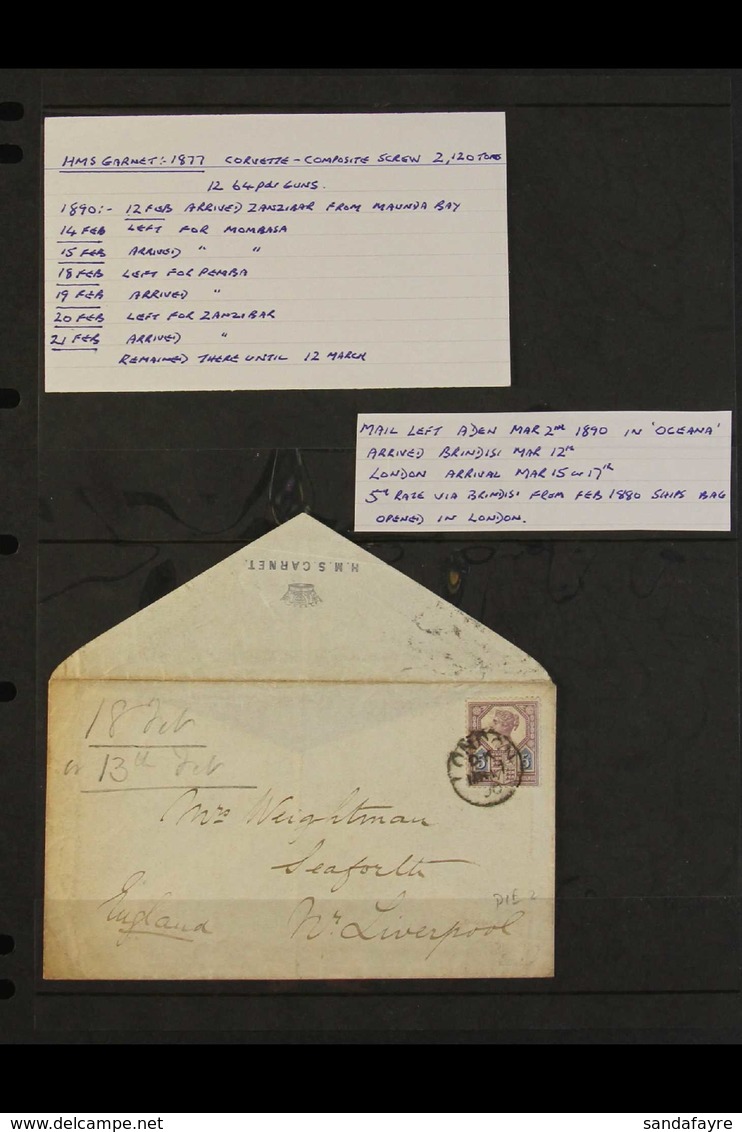 HMS GARNET:- 1877 CORVETTE - COMPOSITE SCREW 2,120 TONS
12 64pdr GUNS.
1890:- 12 FEB ARRIVED ZANZIBAR FROM MAUNDA BAY
14 FEB LEFT FOR MOMBASA
15 FEB ARRIVED " "
18 FEB LEFT FOR PEMBA
19 FEB ARRIVED "
20 FEB LEFT FOR ZANZIBAR
21 FEB ARRIVED "
REMAINED THERE UNTIL 12 MARCH
MAIL LEFT ADEN MAR 2nd 1890 IN 'OCEANA'
ARRIVED BRINDISI MAR 12th
LONDON ARRIVAL MAR 15 or 17th
5d RATE VIA BRINDISI FROM FEB 1880 SHIPS BAG
OPENED IN LONDON.
H.M.S GARNET.
18 Feb
or 13th Feb
LONDON
90
Mrs Weightman
Seaforth
DIE 2
England
Nr. Liverpool
delcampe.net
sandafayre